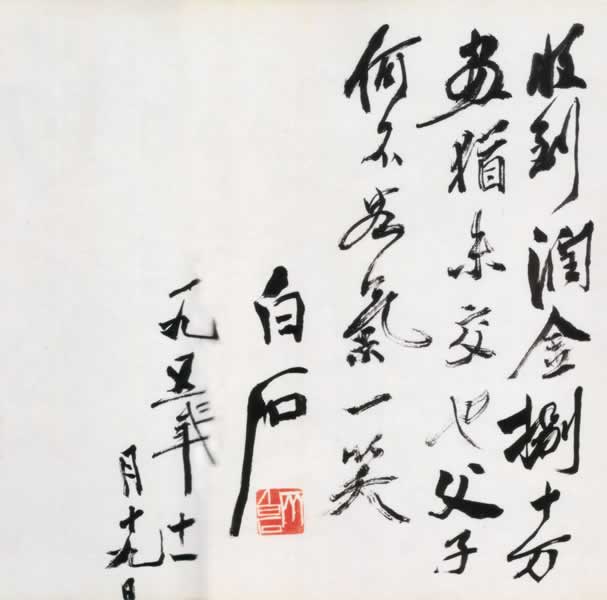 收到潤金捌十万
畫猶未交也父子
何不客氣一笑
白石
一九五年十一
月十九日